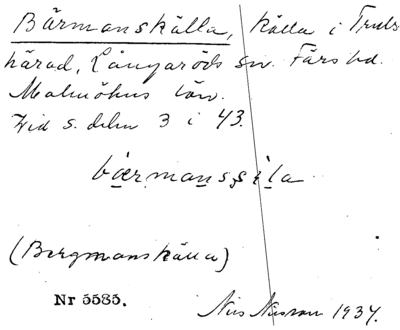 Bärmanskälla, källa i Truls
härad, Långaröds sn. Färs hd.
Malmöhus län.
Vid s. delen 3 i 43.
bærmansşila
(Bergmanskälla)
Nr 5585.
Nils 1934.